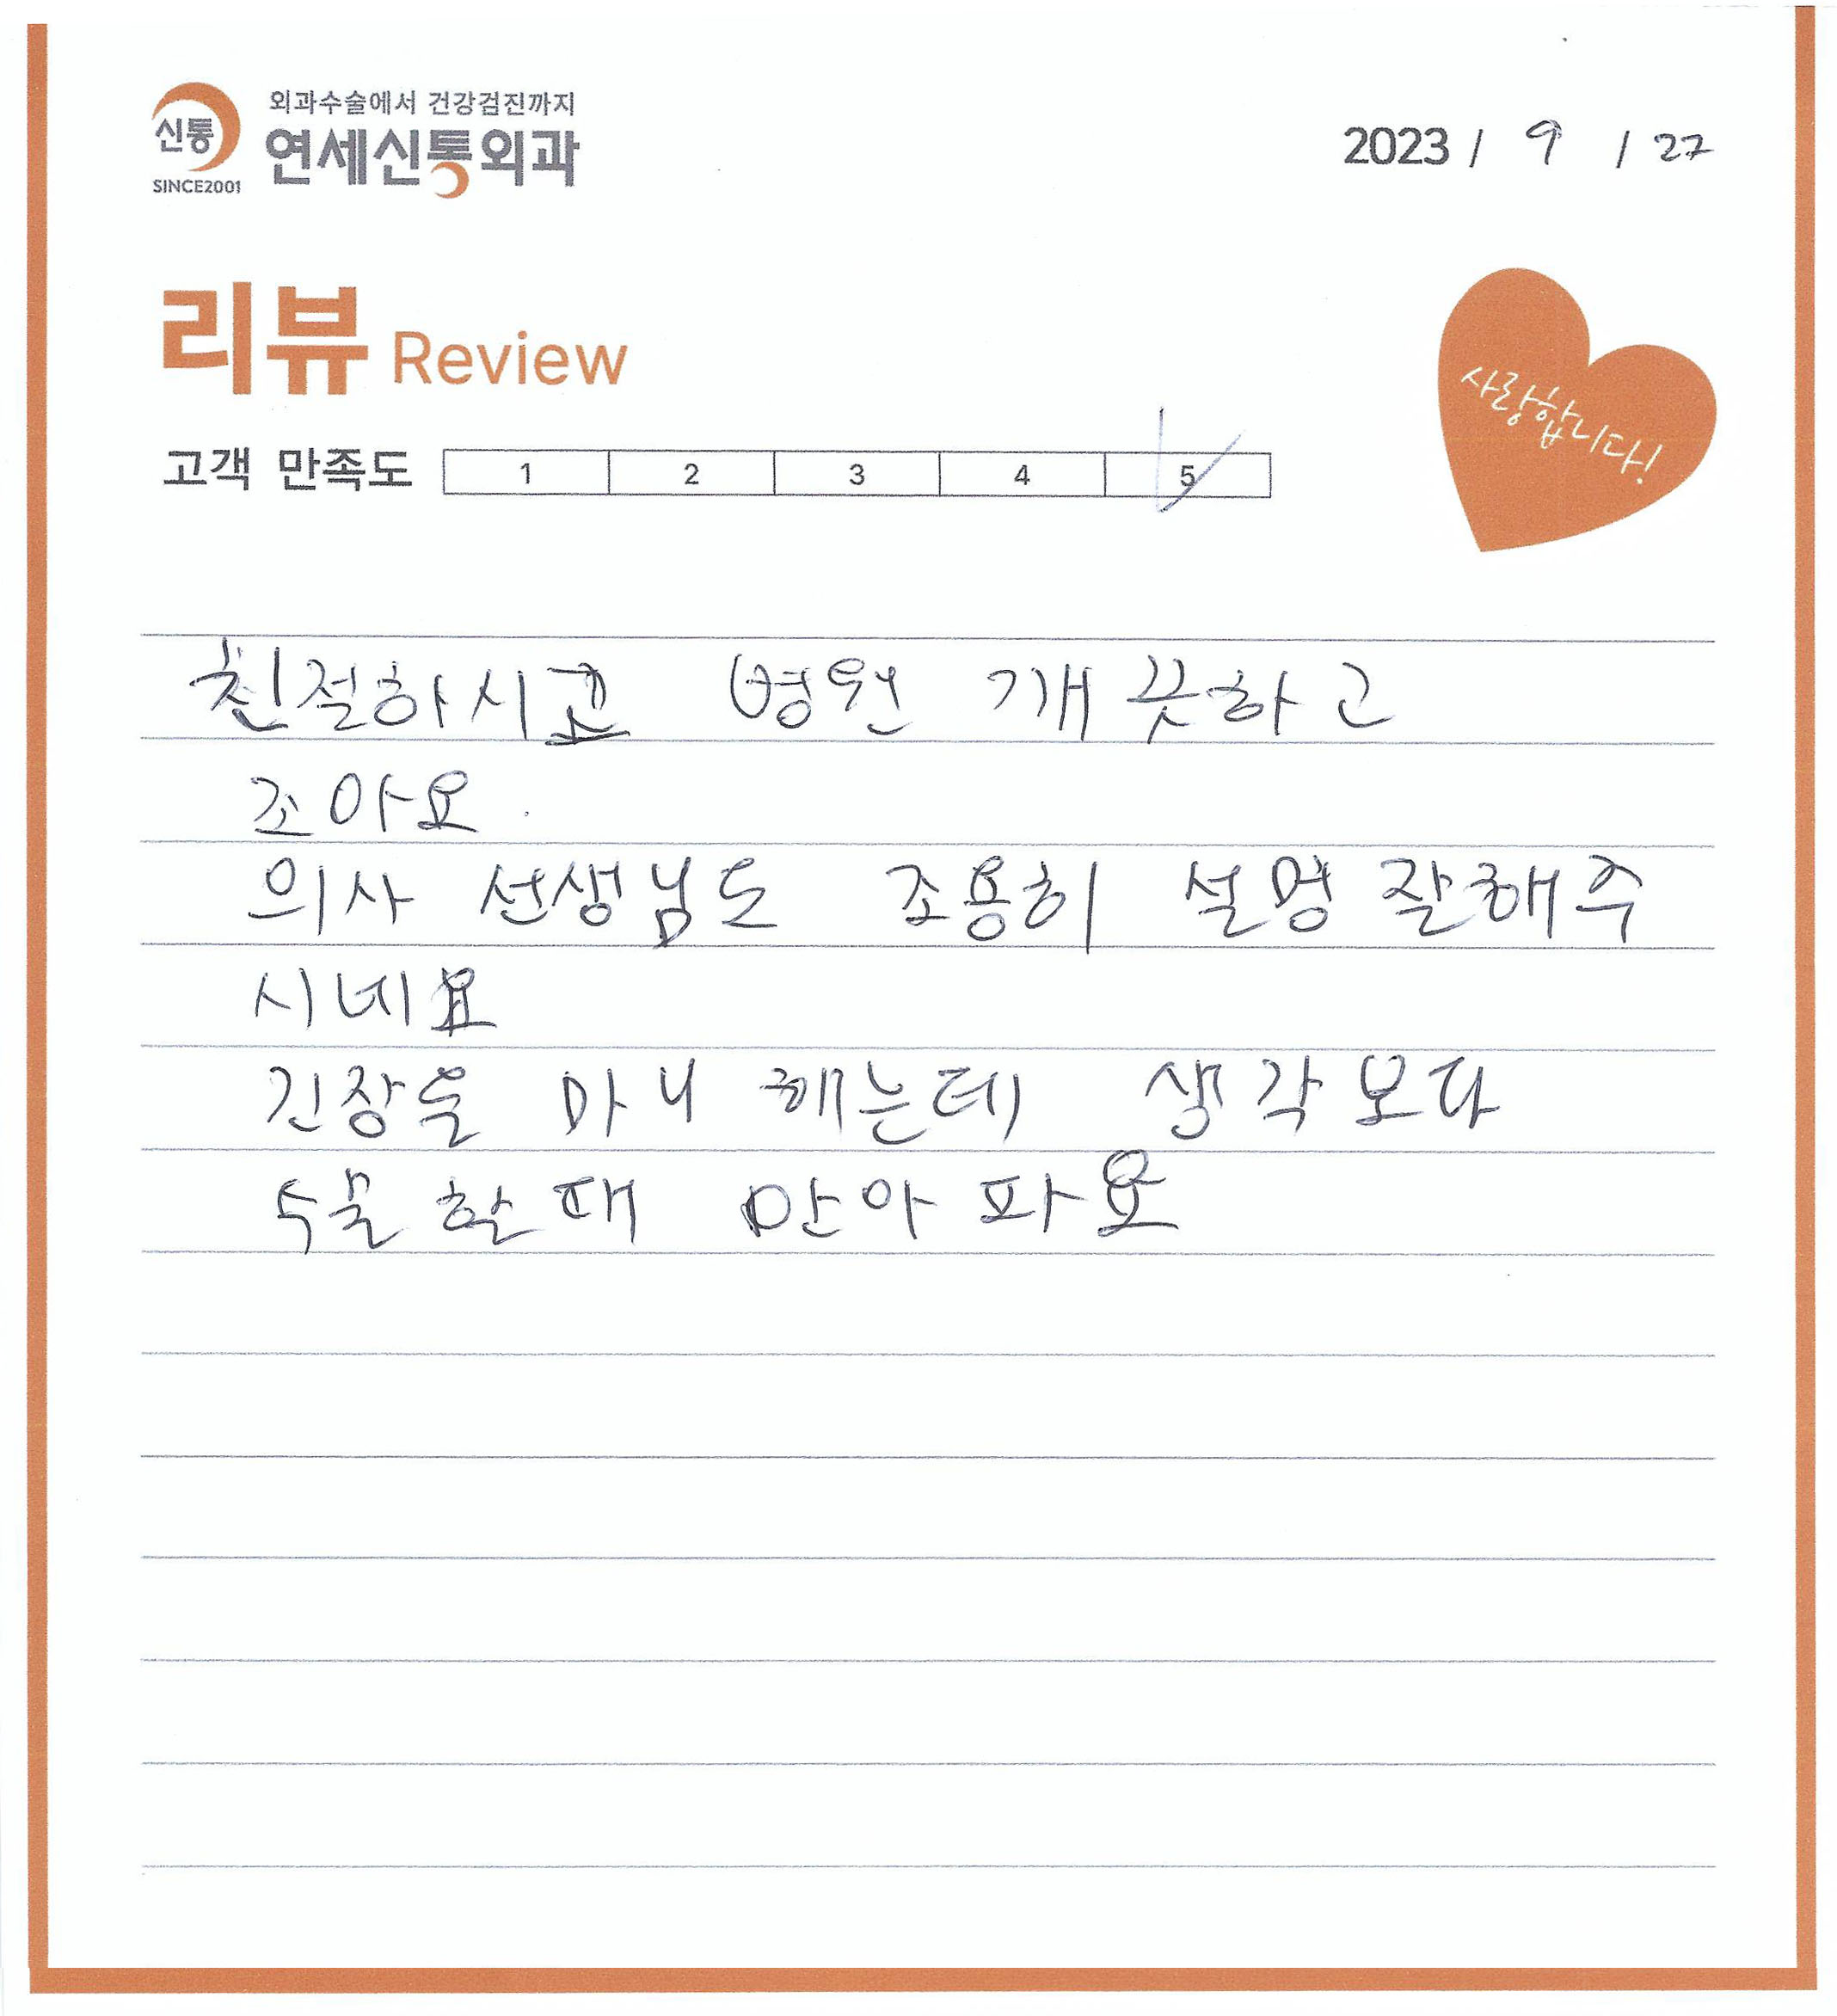 외과수술에서 건강검진까지
신통
연세신통외과
SINCE2001
2023 / 9 / 27
리뷰 Review
사랑합니다!
고객 만족도 1 2 3 4 5
친절하시고 병원 개끗하고
조아요.
의사 선생님도 조용히 설명 잘해주
시네요
긴장을 마니 해는데 생각보다
수술 할때 안아파요